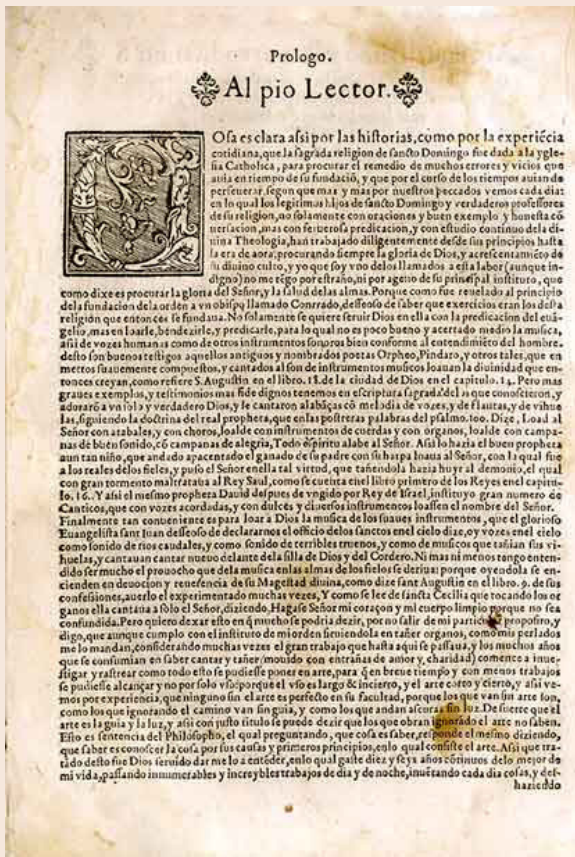 Prologo.
Al pio Lector.
COsa es clara aſsi por las hiſtorias, como por la experiẽcia
cotidiana, que la ſagrada religion de ſancto Domingo fue dada a la ygle
ſia Catholica, para procurar el remedio de muchos errores y vicios que
auia en tiempo de ſu fundaciõ, y que por el curſo de los tiempos auian de
perſeuerar, ſegun que mas y mas por nueſtros peccados vemos cada dia:
en lo qual los legitimos hijos de ſancto Domingo y verdaderos profeſſores
de ſu religion, no ſolamente con oraciones y buen exemplo y honeſta cõ
uerſacion, mas con feruoroſa predicacion, y con eſtudio continuo de la di
uina Theologia, han trabajado diligentemente deſde ſus principios haſta
la era de aora, procurando ſiempre la gloria de Dios, y acreſcentamiẽto de
ſu diuino culto, y yo que ſoy vno de los llamados a eſta labor (aunque in-
digno) no me tẽgo por eſtraño, ni por ageno de ſu principal inſtituto, que
como dixe es procurar la gloria del Señor, y la ſalud de las almas. Porque como fue reuelado al principio
de la fundacion de la orden a vn obiſpo llamado Conrrado, deſſeoſo de ſaber que exercicios eran los deſta
religion que entonces ſe fundaua. No ſolamente ſe quiere ſeruir Dios en ella con la predicacion del euã-
gelio, mas en loarle, bendezirle, y predicarle, para lo qual no es poco bueno y acertado medio la muſica,
aſsi de vozes humanas como de otros inſtrumentos ſonoros bien conforme al entendimiẽto del hombre.
deſto ſon buenos teſtigos aquellos antiguos y nombrados poetas Orpheo, Pindaro, y otros tales, que en
metros ſuauemente compueſtos, y cantados al ſon de inſtrumentos muſicos loauan la diuinidad que en-
tonces creyan, como refiere S. Auguſtin en el libro. 18. de la ciudad de Dios en el capitulo. 14. Pero mas
graues exemplos, y teſtimonios mas fide dignos tenemos en eſcriptura ſagrada del os que conoſcieron, y
adorarõ a vn ſolo y verdadero Dios, y le cantaron alabãças cõ melodia de vozes, y de flautas, y de vihue
las, ſiguiendo la doctrina del real propheta, que en las poſtreras palabras del pſalmo. 100. Dize, Load al
Señor con atabales, y con choros, loalde con inſtrumentos de cuerdas y con organos, loalde con campa-
nas de buen ſonido, cõ campanas de alegria, Todo eſpiritu alabe al Señor. Aſsi lo hazia el buen propheta
aun tan niño, que andãdo apacentado el ganado de ſu padre con ſu harpa loaua al Señor, con la qual fue
a los reales de los fieles, y puſo el Señor en ella tal virtud, que tañendola hazia huyr al demonio, el qual
con gran tormento maltrataua al Rey Saul, como ſe cuenta en el libro primero de los Reyes en el capitu-
lo. 16. Y aſsi el meſmo propheta Dauid deſpues de vngido por Rey de Iſrael, inſtituyo gran numero de
Canticos, que con vozes acordadas, y con dulces y diuerſos inſtrumentos loaſſen el nombre del Señor.
Finalmente tan conueniente es para loar a Dios la muſica de los ſuaues inſtrumentos, que el glorioſo
Euangeliſta ſant Iuan deſſeoſo de declararnos el officio de los ſanctos en el cielo dize, oy vozes en el cielo
como ſonido de rios caudales, y como ſonido de terribles truenos, y como de muſicos que tañian ſus vi-
huelas, y cantauan cantar nueuo delante de la ſilla de Dios y del Cordero. Ni mas ni menos tengo enten-
dido ſer mucho el prouecho que de la muſica en las almas de los fieles ſe deriua: porque oyendola ſe en-
cienden en deuocion y reuerencia de ſu Mageſtad diuina, como dize ſant Auguſtin en el libro. 9. de ſus
confeſsiones, auerlo el experimentado muchas vezes, Y como ſe lee de ſancta Cecilia que tocando los or
ganos ella cantaua a ſolo el Señor, diziendo, Hagaſe Señor mi coraçon y mi cuerpo limpio porque no ſea
confundida. Pero quiero dexar eſto en q̃ mucho ſe podria dezir, por no ſalir de mi particular propoſito, y
digo, que aunque cumplo con el inſtituto de mi orden ſiruiendola en tañer organos, como mis perlados
me lo mandan, conſiderando muchas vezes el gran trabajo que haſta aqui ſe paſſaua, y los muchos años
que ſe conſumian en ſaber cantar y tañer (mouido con entrañas de amor y charidad) comence a inue-
ſtigar y raſtrear como todo eſto ſe pudieſſe poner en arte, para q̃ en breue tiempo y con menos trabajos
ſe pudieſſe alcançar y no por ſolo vſo: porque el vſo es largo & incierto, y el arte corto y cierto, y aſsi ve-
mos por experiencia, que ninguno ſin el arte es perfecto en ſu facultad, porque los que van ſin arte ſon,
como los que ignorando el camino van ſin guia, y como los que andan aſcuras ſin luz. De ſuerte que el
arte es la guia y la luz, y aſsi con juſto titulo ſe puede dezir que los que obran ignorãdo el arte no ſaben.
Eſto es ſentencia del Philoſopho, el qual preguntando, que coſa es ſaber, reſponde el meſmo diziendo,
que ſaber es conoſcer la coſa por ſus cauſas y primeros principios, en lo qual conſiſte el arte. Aſsi que tra-
tado deſto fue Dios ſeruido dar me lo a entẽder, en lo qual gaſte diez y ſeys años cõtinuos de lo mejor de
mi vida, paſſando innumerables y increybles trabajos de dia y de noche, inuẽtando cada dia coſas, y deſ-
haziẽdo